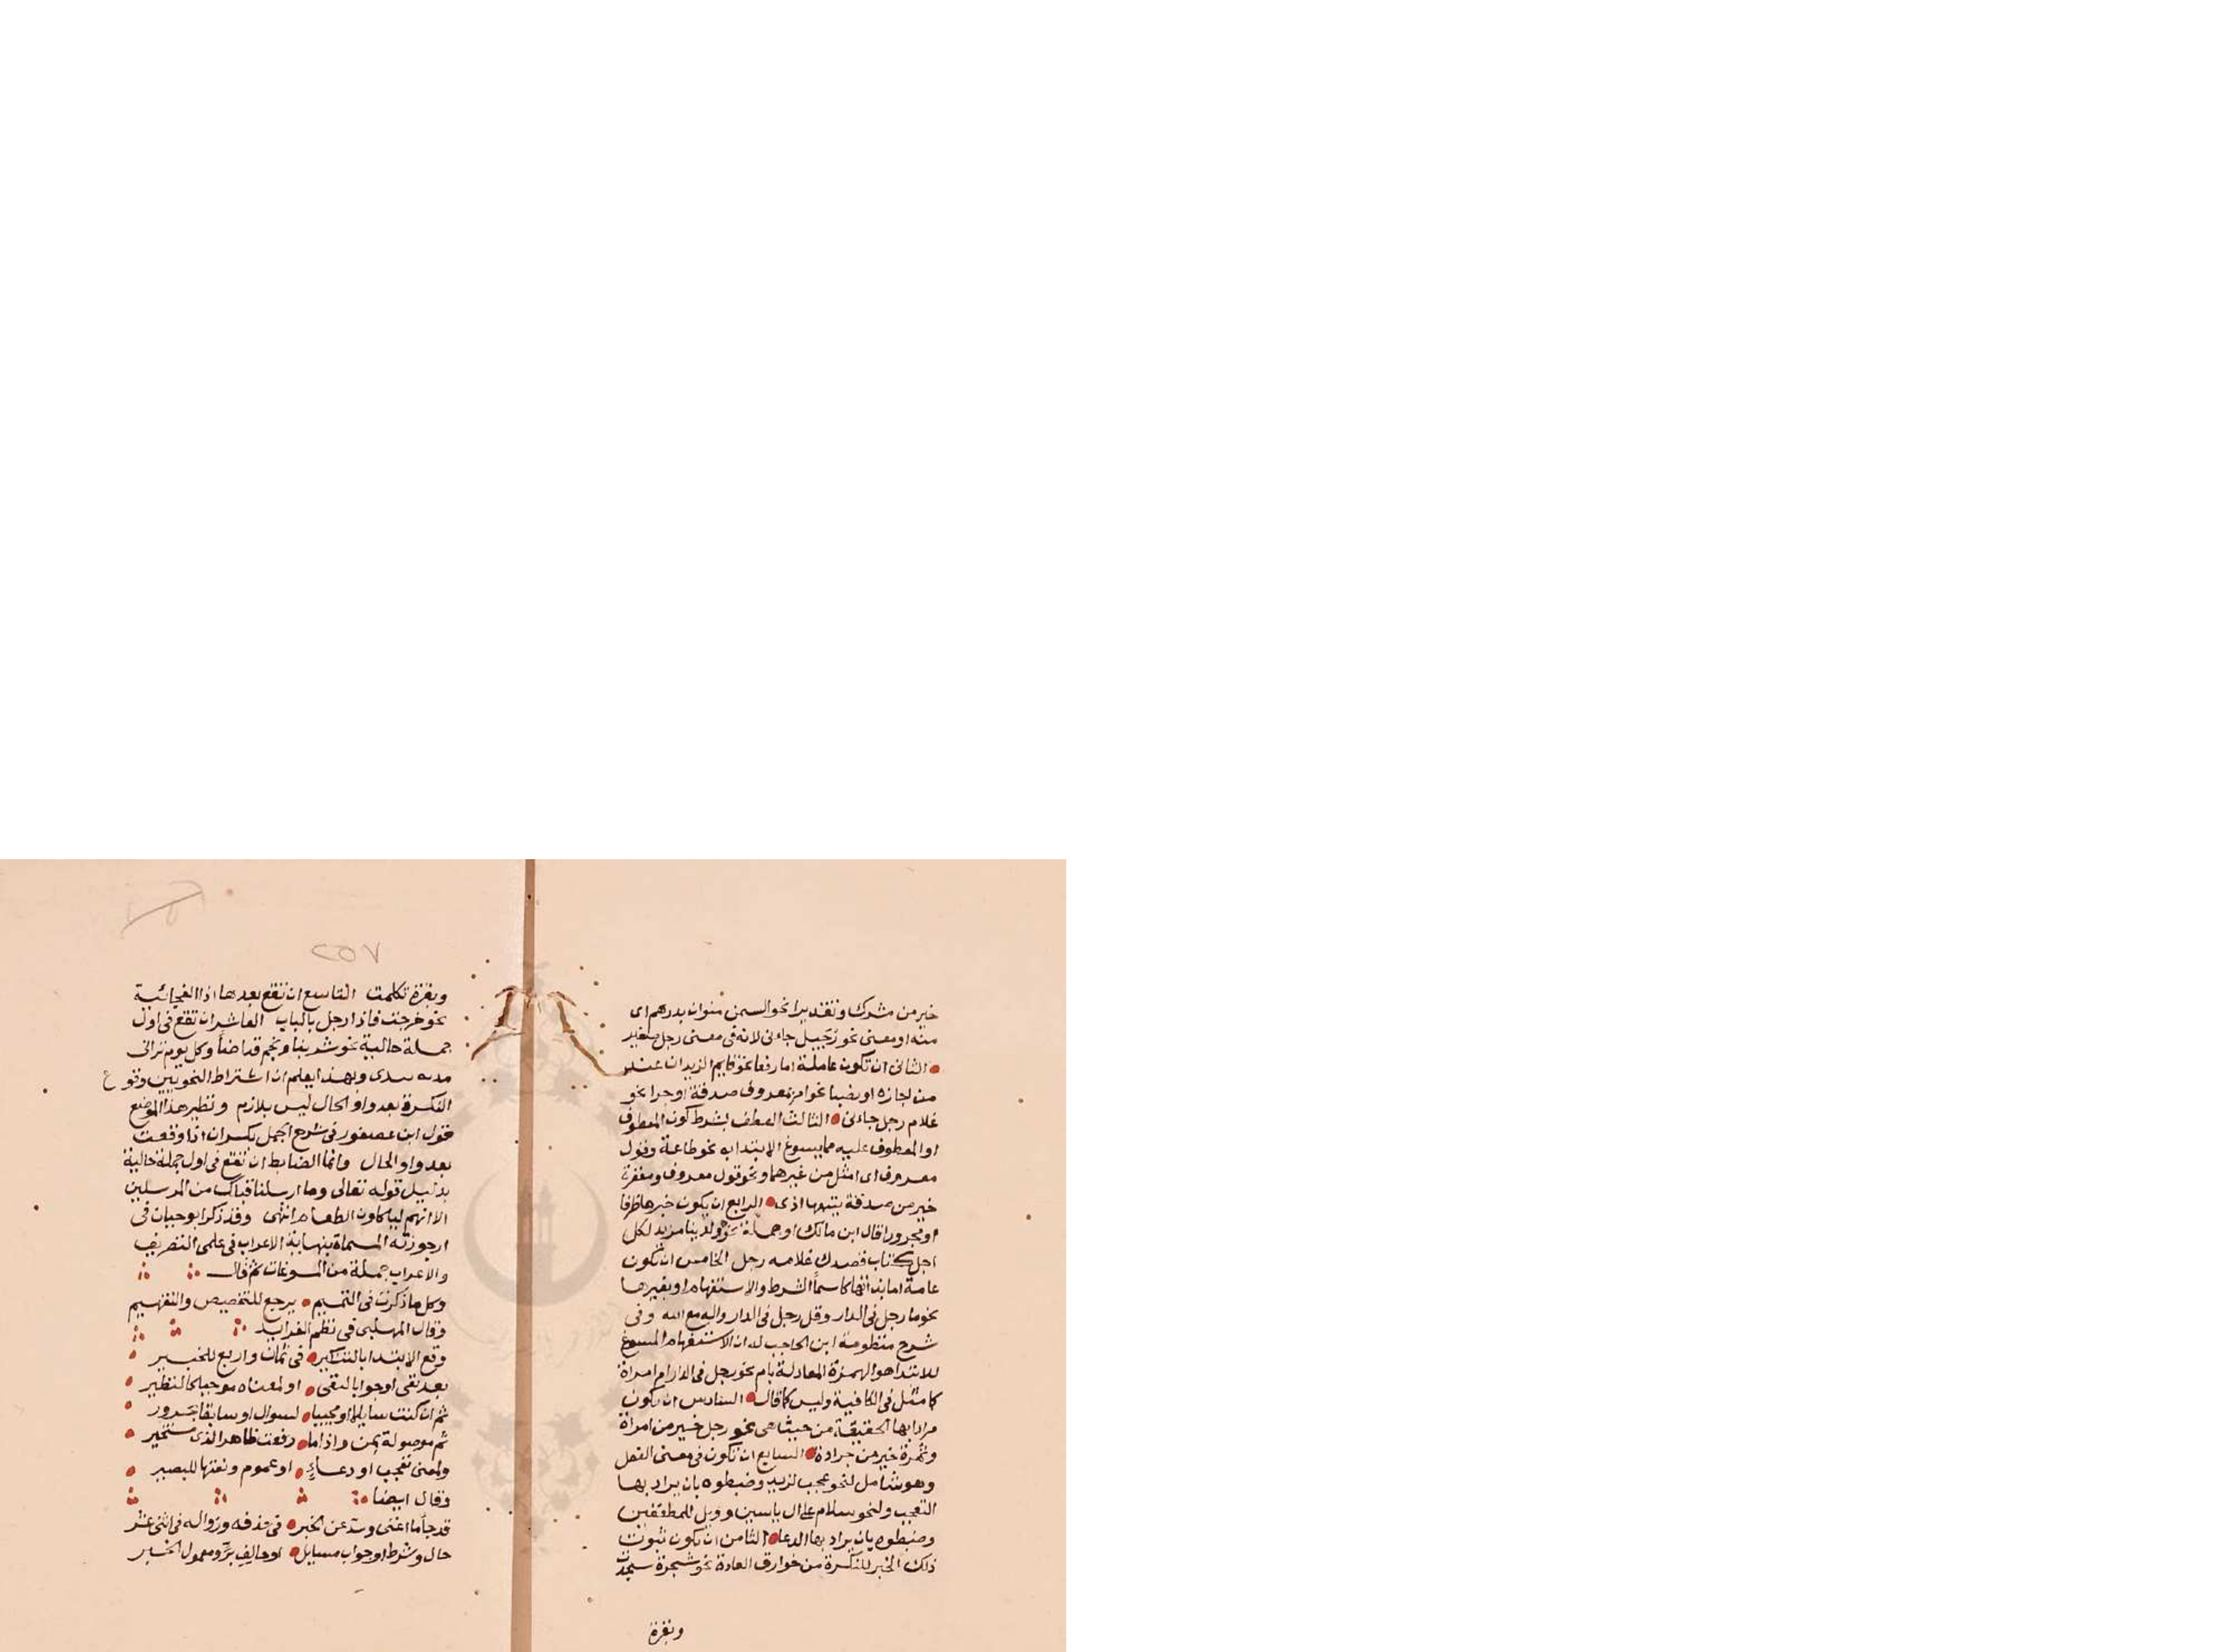 خير من مشرك وتقديرا نحو السمن منوان بدرهم اى
منه او معنى نحو رجيل جاءنى لانه فى معنى رجل صغير
الثانى ان تكون عاملة اما رفعا نحو قايم الزيدان عند
من اجازه او نصبا نحو امر بمعروف صدقة او جرا نحو
غلام رجل جاءنى الثالث العطف بشرط كون المعطوف
او المعطوف عليه مما يسوغ الابتدا به نحو طاعة وقول
معروف اى امثل من غيرهما ونحو قول معروف ومغفرة
خير من صدقة يتبعها اذى الرابع ان يكون خبرها ظرفا
او مجرورا قال ابن مالك او جملة نحو ولدينا مزيد لكل
اجل كتاب قصدك غلامه رجل الخامس ان تكون
عامة اما بذاتها كاسما الشرط والاستفهام او بغيرها
نحو ما رجل فى الدار وهل رجل فى الدار واله مع الله وفى
شرح منظومة ابن الحاجب له ان الاستفهام المسوغ
للابتدا هو الهمزة المعادلة بام نحو رجل فى الدار ام امراة
كما مثل فى الكافية وليس كما قال السادس ان تكون
مرادا بها الحقيقة من حيث هى نحو رجل خير من امراة
وتمرة خير من جرادة السابع ان تكون فى معنى الفعل
وهو شامل لنحو عجب لزيد وضبطوه بان يراد بها
التعجب ولنحو سلام على ال ياسين وويل للمطففين
وضبطوه بان يراد بها الدعا الثامن ان يكون ثبوت
ذلك الخبر للنكرة من خوارق العادة نحو شجرة سجدت
وبقرة
٢٥٧
وبقرة تكلمت التاسع ان تقع بعدها اذا الفجائية
نحو خرجت فاذا رجل بالباب العاشر ان تقع فى اول
جملة حالية نحو سرينا ونجم قد اضاء وكل يوم ترانى
مدية بيدى وبهذا يعلم ان اشتراط النحويين وقوع
النكرة بعد واو الحال ليس بلازم ونظير هذا الموضع
قول ابن عصفور فى شرح الجمل بكسر ان اذا وقعت
بعد واو الحال وانما الضابط ان تقع فى اول جملة حالية
بدليل قوله تعالى وما ارسلنا قبلك من المرسلين
الا انهم لياكلون الطعام انتهى وقد ذكر ابو حيان فى
ارجوزته المسماة بنهاية الاعراب فى علمى التصريف
والاعراب جملة من المسوغات ثم قال
وكل ما ذكرت فى التتميم يرجع للتخصيص والتعميم
وقال المهلبى فى نظم الفرايد
وقع الابتدا بالتنكير فى ثمان واربع للخبير
بعد نفى او جوابا لنفى او لمعناه موجبا كالنظير
ثم ان كنت سايلا او مجيبا لسوال او سابقا بمجرور
ثم موصولة بمن واذا ما رفعت ظاهرا لذى مستخير
ولمعنى تعجب او دعاء او عموم ونعتها للبصير
وقال ايضا
قد جا ما اغنى وسد عن الخبر فى حذفه وزواله فى اثنى عشر
حال وشرط او جواب مسايل او حالف بر ومعمول الخبر